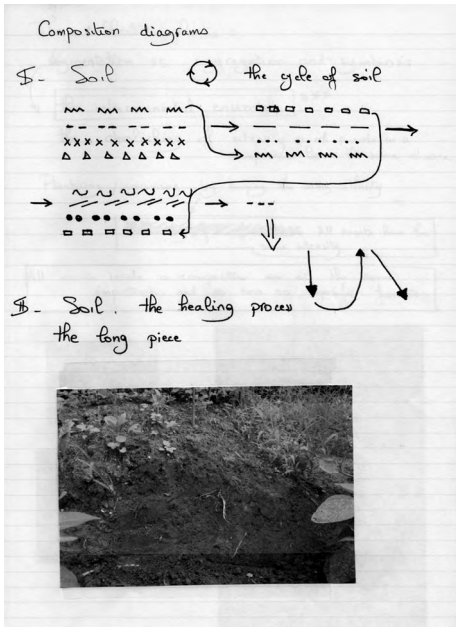 Composition diagrams
$- Soil the cycle of soil
$- Soil. the healing process
the long piece